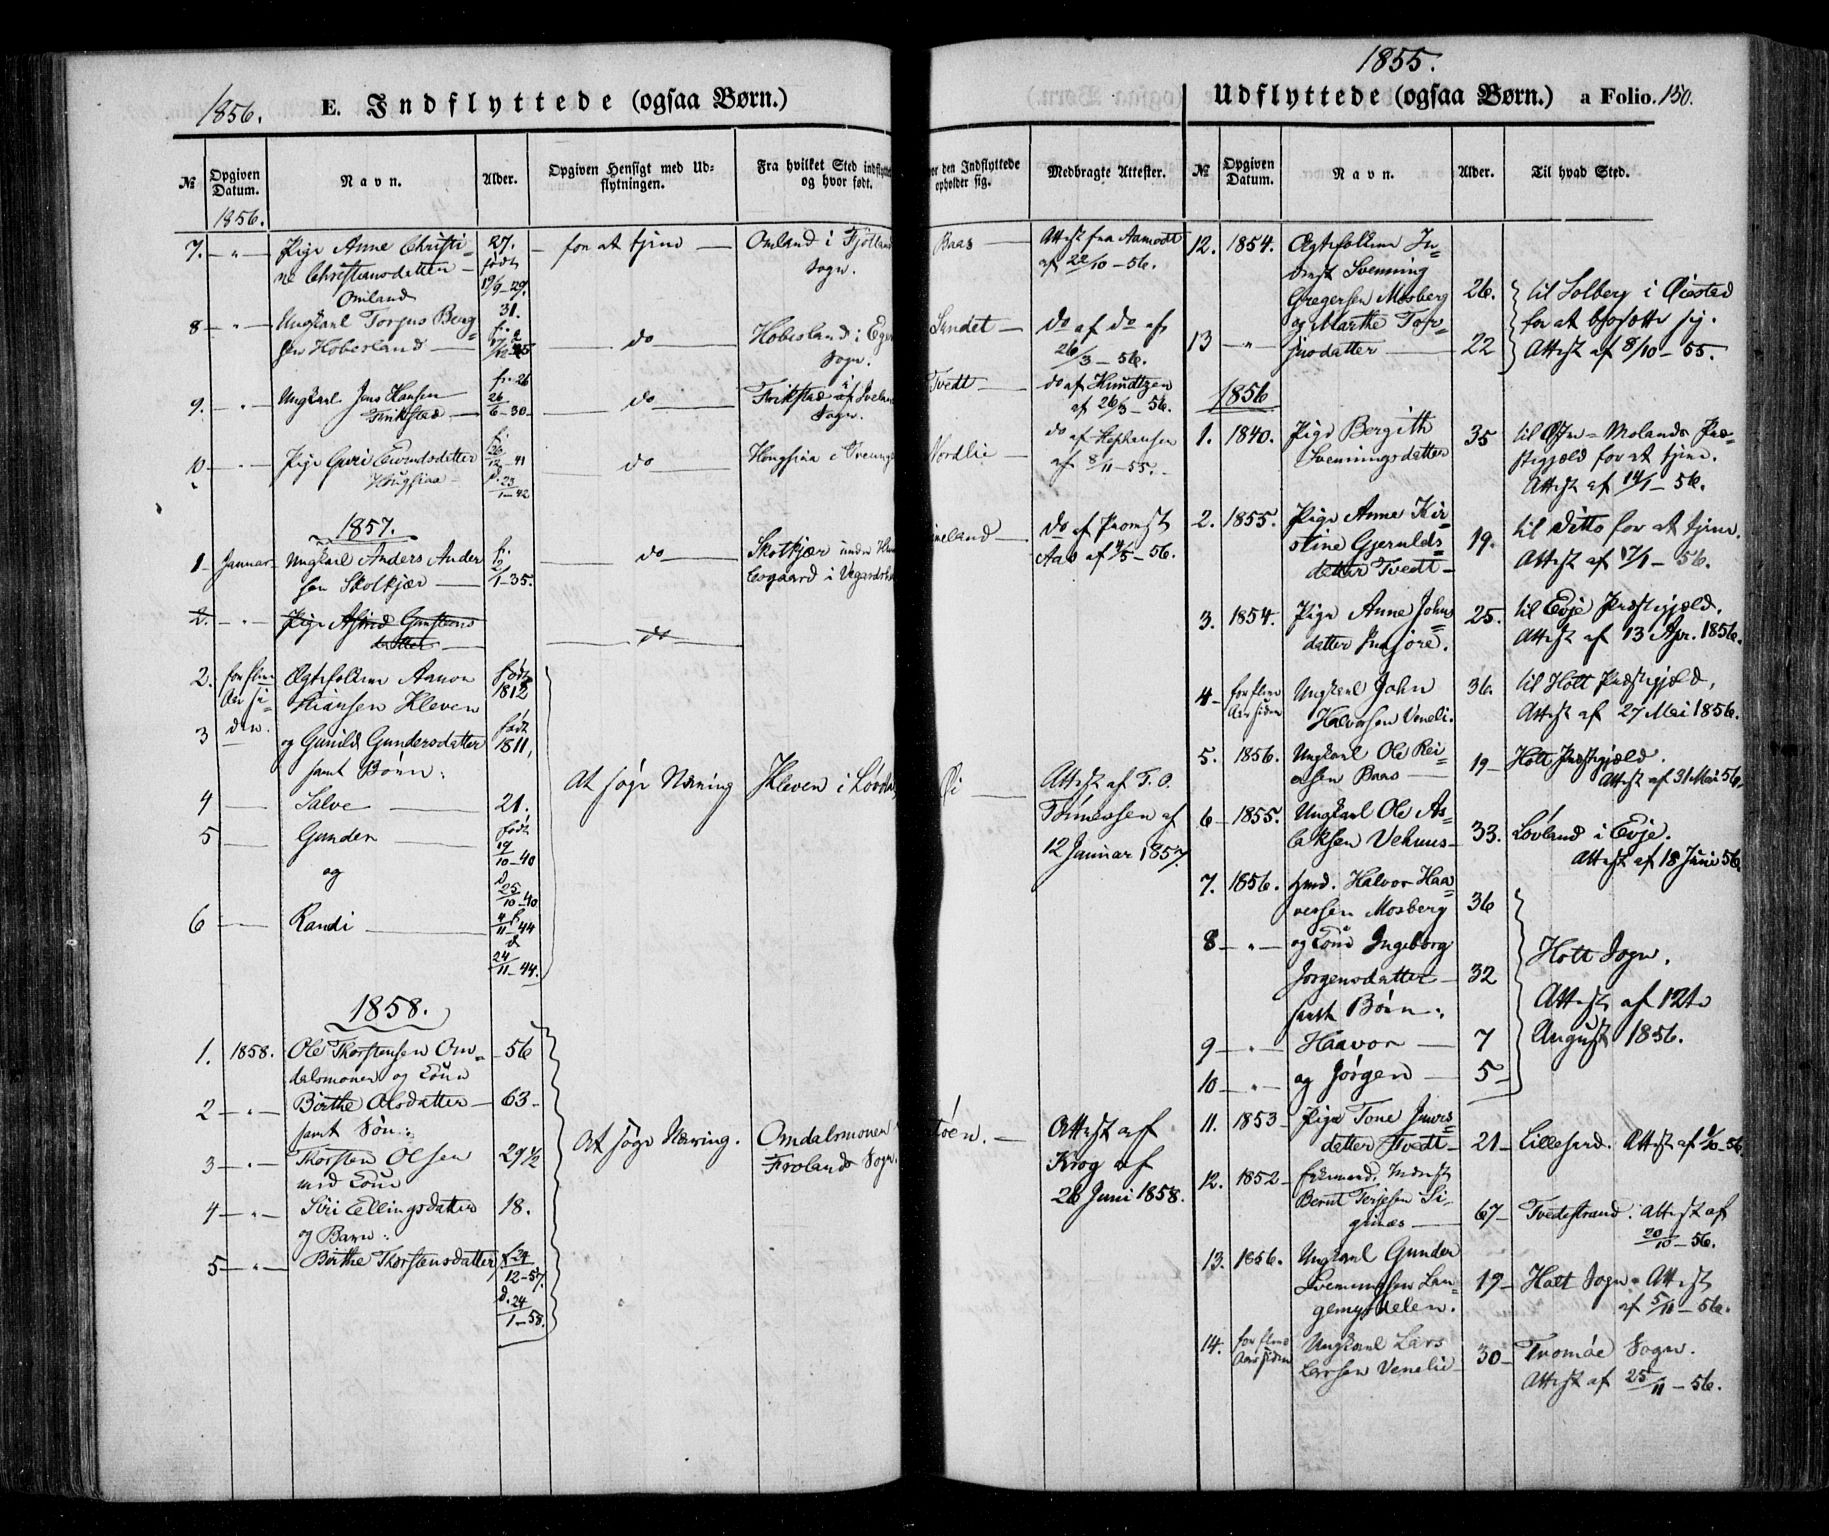 1856. E. Indflyttede (ogsaa Børn.)
№ Opgiven Datum. Navn. Alder. Opgiven Hensigt med Udflytningen. Fra hvilket Sted indflytte og hvor født.
1856.
7. — " — Pige Anne Christi= 27. for at tjene — Omland i Fjotland
ne Christiansdatter — født Sogn.
Omland 19/9 — 29.
8 — " — Ungkarl Torjus Berg= 31.
sen Hobesland — do Hobesland i
Sogn.
9. — " — Ungkarl Jens Hansen f. 26 do
Frikstad — 6 — 30 Frikstad
Sogn.
10 — " — Pige Guri Eivindsdatter f. 26/12 — 41 do
d. 23/1 — 42
1857.
1 — Januar — Ungkarl Anders Ander f. do Skolkjær under
sen Skolkjær — 1 — 35. i Vegardsh
2. — " — Pige Astrid Gunstens — do —
datter —
2. for flere Ægtefolkene Aanon født 1812
Aar si= Kleven
3 den. og Gunild Gundersdatter født 1811,
samt Børn:
4 — Salve — 21. At søge Næring Kleven i Løvda
5 — Gunder — født 19/10 — 40
og d. 25/10 — 40
6 — Randi — f. 4/11 — 44
d. 24/11 — 44.
1858.
1. 1858. Ole Thorstensen Om= — 56
dalsmonen og Kone
2 — " — Birthe Olsdatter — 63 —
samt Søn:
3 — " — Thorsten Olsen 29½ At søge Næring. Omdalsmonen
med Kone Frolands Sogn.
4 — " — Siri Ellingsdatter 18.
og Barn:
5 — " — Birthe Thorstensdatter f. 24/12 — 57.
d. 24/1 — 58.
or den Indflyttede opholder sig. Medbragte Attester.
Baas — Attest fra Aamodt
af 22/10 — 56.
Sandet — do af do af
26/3 — 56.
Tvedt — do af
af 26/3 — 56.
Nordlie do af Stephansen
af 8/11 — 55.
neland — do af Promst
Aas af 4/5 — 56.
Øi — Attest af T. O.
Tønnessen af
12 Januar 1857.
töen. — Attest af
Krog af
26 Juni 1858.
1855.
Udflyttede (ogsaa Børn.) a Folio. 150.
№ Opgiven Datum. Navn. Alder. Til hvad Sted.
12. 1854. Ægtefolkene In=
derst Svenning
Gregersen Mosberg 26. til Solberg i Øiestad
og Marthe Tor= for at bosætte sig.
13 — " — jusdatter — 22 Attest af 8/10 — 55.
1856
1. 1840. Pige Bergith 35 til Østre=Molands Præ=
Svenningsdatter stegjeld for at tjene.
Attest af 14/1 — 56.
2. 1855. Pige Anne Kir=
stine Gjerulds= 19. til ditto for at tjene.
datter Tvedt — Attest af 17/1 — 56.
3. 1854. Pige Anne Johns= 25. til Evje Præstegjæld.
datter Attest af 13 Apr. 1856.
4 — for flere Ungkarl John 36. til Holt Præstegjæld,
Aar siden Halvorsen Veneli. Attest af 27 Mai 1856.
5. 1856. Ungkarl Ole Rei= 19 — Holt Præstegjæld.
ersen Baas — Attest af 31 Mai 56.
6 — 1855. Ungkarl Ole As=
laksen Vehuus — 33. Løvland i Evje.
Attest af 18 Juni 56
7. 1856. Hmd. Halvor Haa=
vorsen Mosberg 36
8 — " — og Kone Ingeborg Holt Sogn.
Jørgensdatter — 32 Attest af 12te
samt Børn:
9 — " — Haavor — 7 August 1856.
10 — " — og Jørgen — 5 —
11. 1853 — Pige Tone Jens=
datter Tvedt — 21 — Lillesand. Attest af 1/10 — 56
12. 1852 — Inderst
Bernt Terjesen Li=
gnæs — 67 — Tvedestrand. Attest af
20/10 — 56.
13. 1856. Ungkarl Gunder
Svenningsen Lan= 19 — Holt Sogn. Attest
gemyrdelen. af 5/11 — 56.
14. for flere Ungkarl Lars
Aar siden Larsen Venelie — 30 — Tromøe Sogn.
Attest af 25/11 — 56.